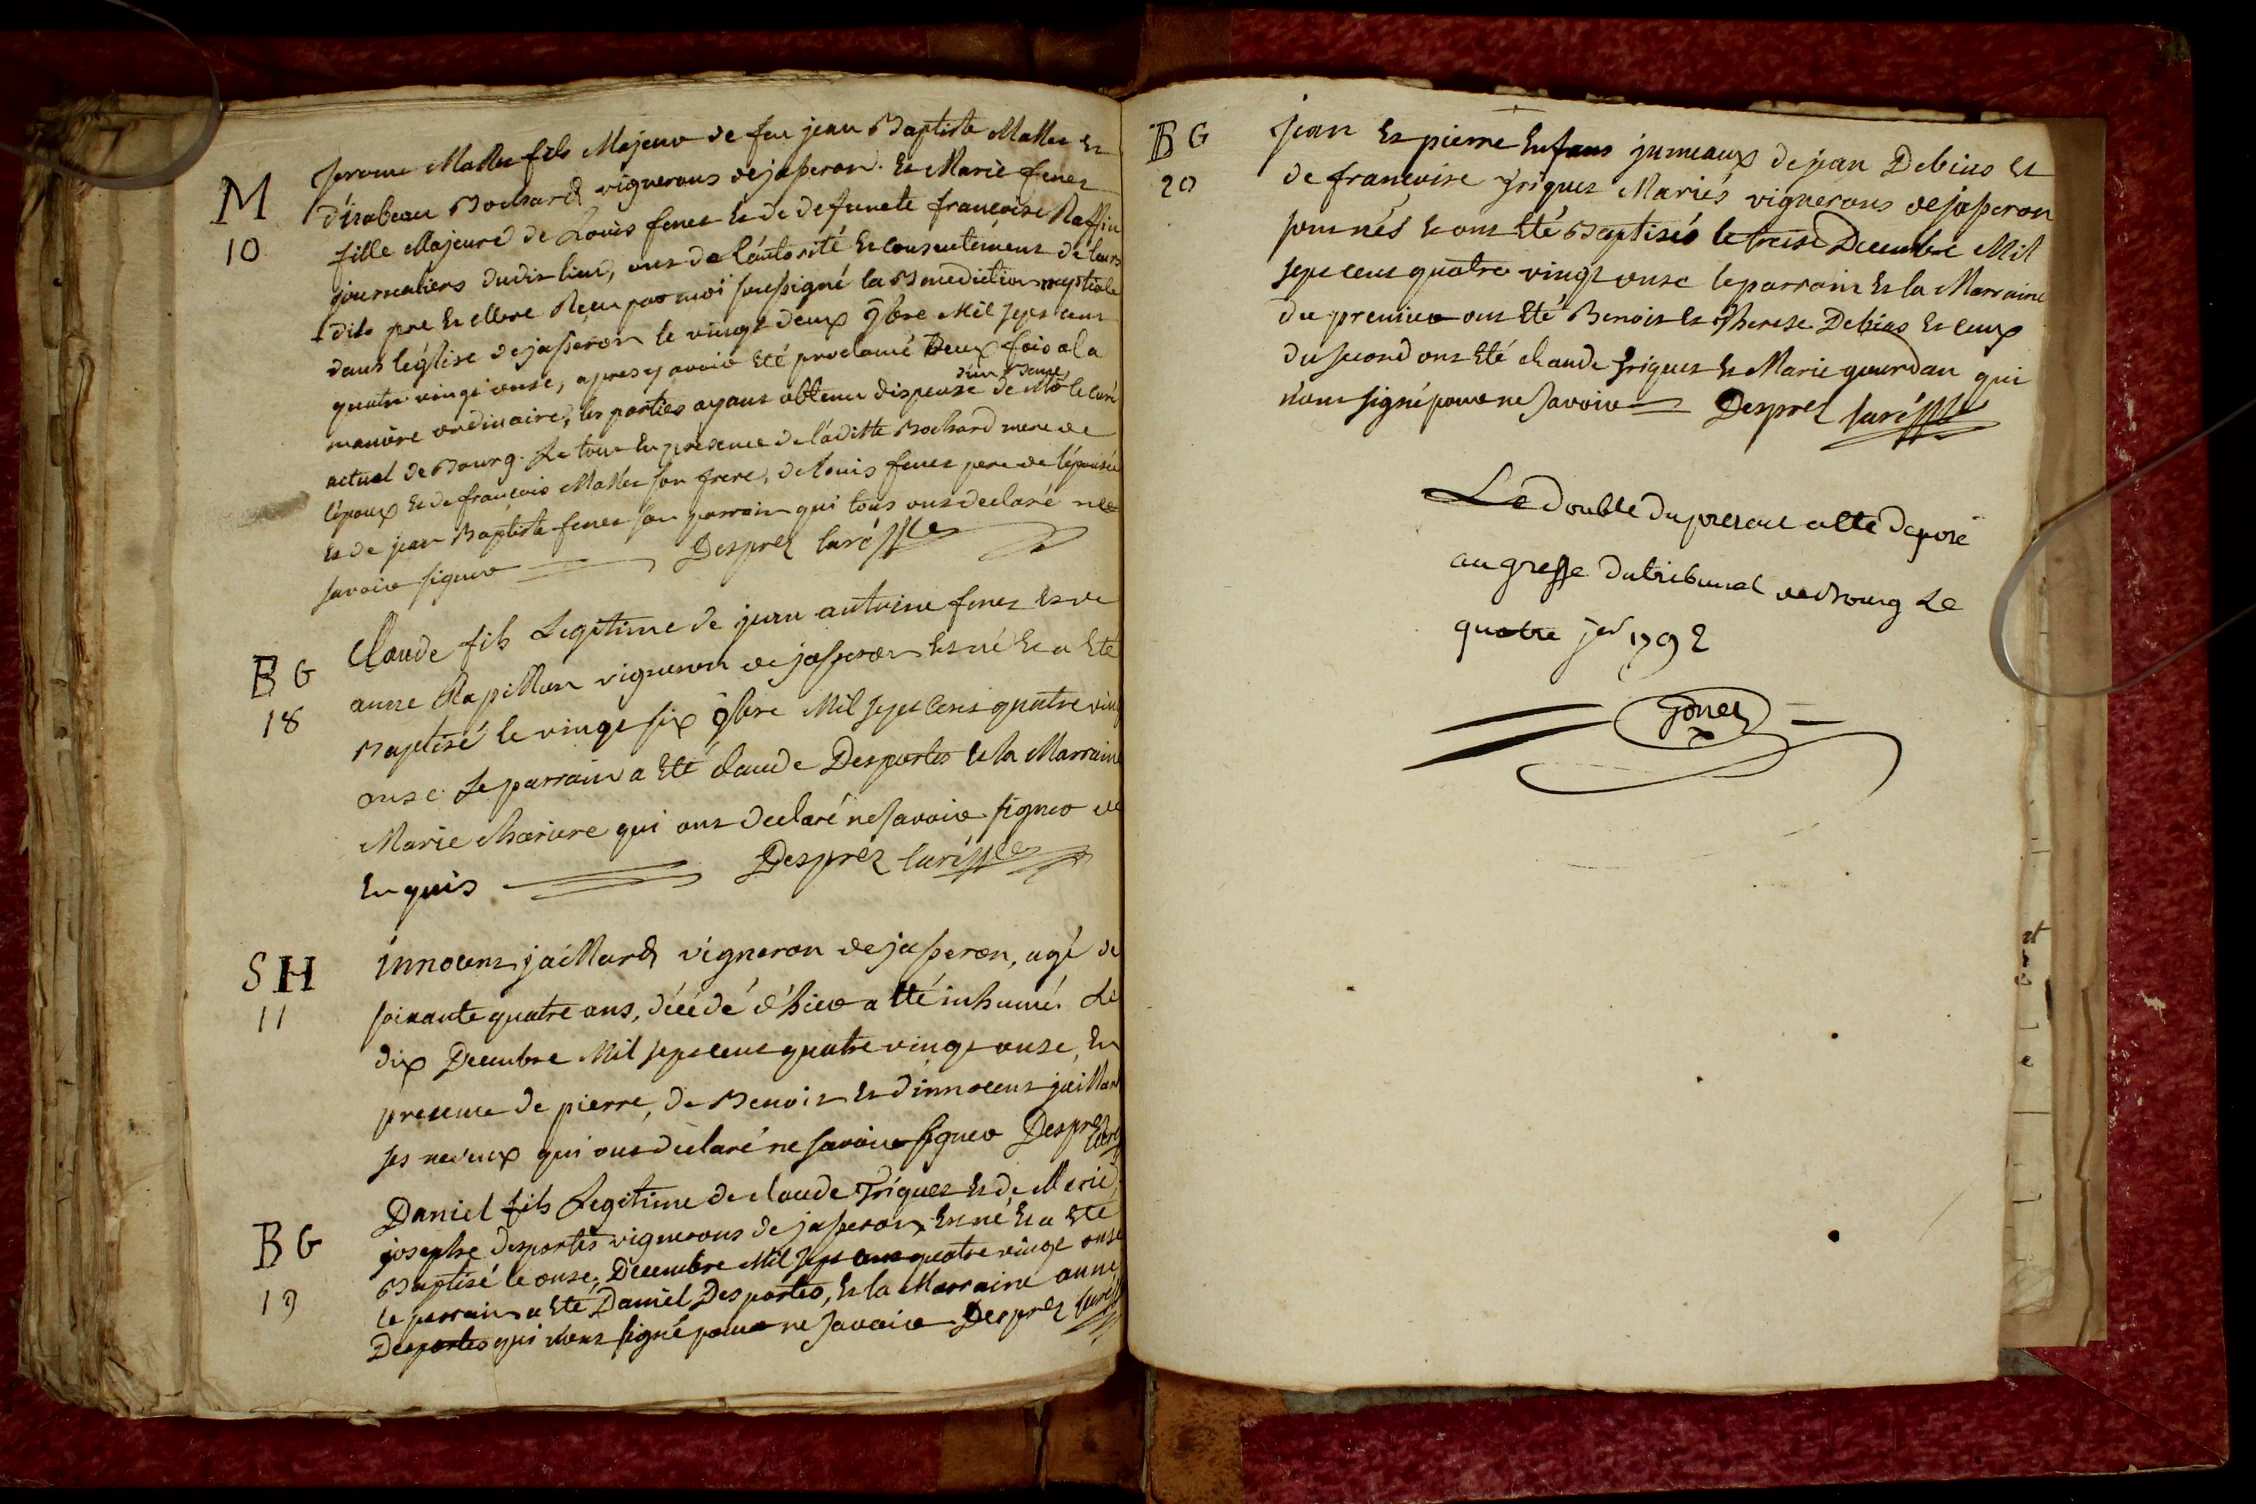 M
10
Jerome Mallet fils Majeur de feu jean Baptiste Mallet Et
d'isabeau Bochard vignerons de jasseron. Et Marie fenet
fille Majeure de Louis fenet Et de defuncte francoise Raffin
journaliers dudit lieu, ont de l'autorité Et consentement de leurs
dits pre Et Mere Recu par moi soussigné la Benediction nuptiale
dans l'église de jasseron le vingt deux 9bre Mil sept cent
quatre vingt onse, apres y avoir Eté proclamé Deux fois a la
maniere ordinaire, les parties ayant obtenu dispense d'un Banc de Mr le curé
actuel de Bourg. Le tout En presence de laditte Bochard mere de
l'époux Et de françois Mallet son frere, de louis fenet pere de l'épousée
Et de jean Baptiste fenet son parrain qui tous ont declaré ne
savoir signer Desprez Curé
B G
18
Claude fils Legitime de jean antoine fenet Et de
anne Rapillon vigneron de jasseron Est né Et a Eté
Baptisé le vingt six 9bre Mil sept Cent quatre vingt
onse. Le parrain a Eté Claude Desportes Et la Marraine
Marie qui ont declaré ne savoir signer de
Enquis Desprez Curé
S H
11
innocent jaillard vigneron de jasseron, agé de
soixante quatre ans, décédé d'hier a Eté inhumé. Le
dix Decembre Mil sept cent quatre vingt onse, En
presence de pierre, de Benoit Et d'innocent jaillard
ses neveux qui ont declaré ne savoir signer Desprez Curé
B G
19
Daniel fils Legitime de claude Triquet Et de Marie
josephe Desportes vignerons de jasseron, Est né Et a Eté
Baptisé le onse, Decembre Mil sept cent quatre vingt onse
le parrain a Eté Daniel Desportes, Et la Marraine anne
Desportes qui n'ont signé pour ne savoir Desprez Curé
B G
20
Jean Et pierre Enfans jumeaux de jean Debias Et
de francoise Triquet Mariés vignerons de jasseron
sont nés Et ont Eté Baptisés le treise Decembre Mil
sept cent quatre vingt onse le parrain Et la Marraine
du premier ont Eté Benoit Et Therese Debias Et ceux
du second ont Eté claude Triquet Et Marie gourdan qui
n'ont signé pour ne savoir Desprez Curé
Le double du present a été deposé
au greffe du tribunal de Bourg Le
quatre jer 1792